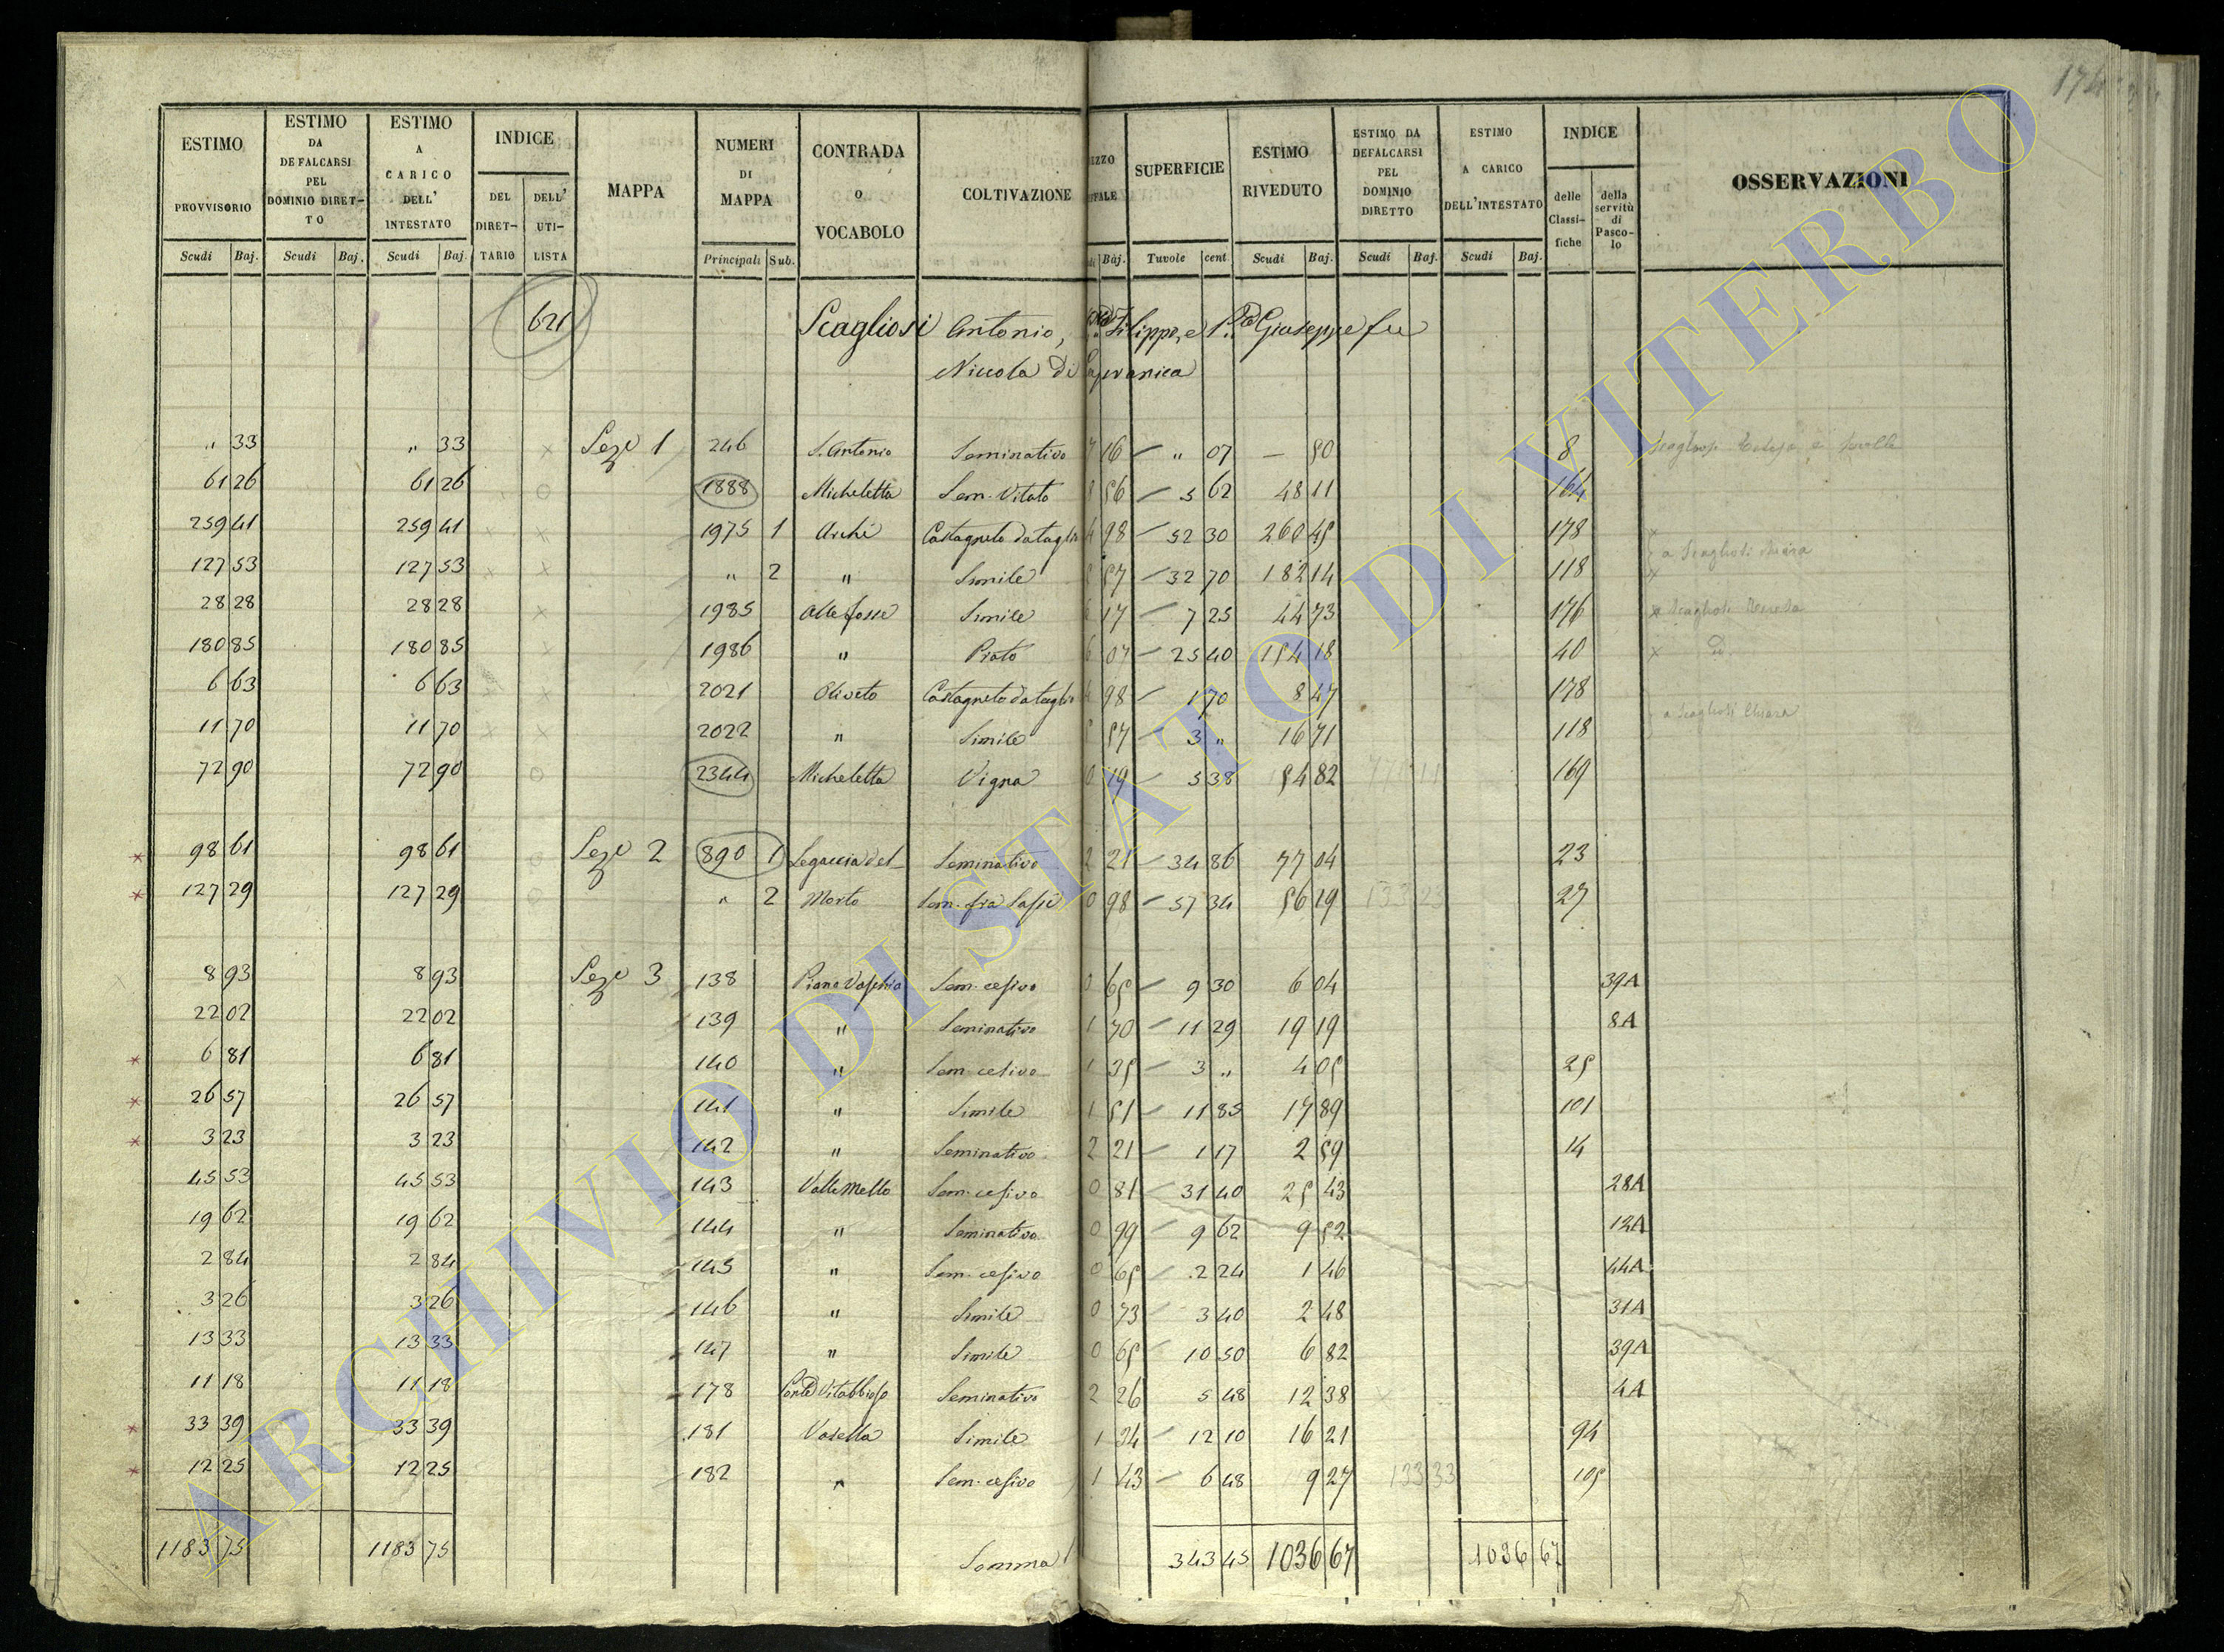 174
ESTIMO PROVVISORIO
ESTIMO DA DEFALCARSI PEL DOMINIO DIRETTO
ESTIMO A CARICO DELL' INTESTATO
INDICE
DEL DIRETTARIO
DELL' UTILISTA
MAPPA
NUMERI DI MAPPA
CONTRADA O VOCABOLO
COLTIVAZIONE
SUPERFICIE
ESTIMO RIVEDUTO
ESTIMO DA DEFALCARSI PEL DOMINIO DIRETTO
ESTIMO A CARICO DELL'INTESTATO
INDICE
delle Classifiche
della servitù di Pascolo
OSSERVAZIONI
Scudi Baj. Scudi Baj. Scudi Baj. Principali Sub. Baj. Tavole cent Scudi Baj. Scudi Baj. Scudi Baj.
621 Scagliosi Antonio, Filippo, e Giuseppe fu
Niccola di Capranica
" 33 " 33 Seze 1 246 S. Antonio Seminativo 16 — " 07 — 50 8
61 26 61 26 1888 Micheletta Sem. Vitato 56 — 5 62 48 11 164
259 41 259 41 1975 1 Archi Castagneto da taglio 4 98 — 52 30 260 45 178
127 53 127 53 " 2 " Simile 57 — 32 70 182 14 118 a Scagliosi Chiara
28 28 28 28 1985 Alle fosse Simile 6 17 — 7 25 44 73 176
180 85 180 85 1986 " Prato 6 07 — 25 40 154 18 40
6 63 6 63 2021 Oliveto Castagneto da taglio 4 98 — 1 70 8 47 178
11 70 11 70 2022 " Simile 57 — 3 " 16 71 118 a Scagliosi Chiara
72 90 72 90 2344 Micheletta Vigna 0 19 — 5 38 54 82 169
98 61 98 61 Seze 2 890 1 Legaccia del Seminativo 2 21 — 34 86 77 04 23
127 29 127 29 " 2 Morto Sem. fra Sassi 0 98 — 57 34 56 19 133 23 27
8 93 8 93 Seze 3 138 Piana Vaschia Sem. cesivo 0 65 — 9 30 6 04 39A
22 02 22 02 139 " Seminativo 1 70 — 11 29 19 19 8A
6 81 6 81 140 " Sem. cesivo 1 35 — 3 " 4 05 25
26 57 26 57 141 " Simile 1 51 — 11 85 17 89 101
3 23 3 23 142 " Seminativo 2 21 — 1 17 2 59 14
45 53 45 53 143 Valle Mello Sem. cesivo 0 81 — 31 40 25 43 28A
19 62 19 62 144 " Seminativo 0 99 — 9 62 9 52 12A
2 84 2 84 145 " Sem. cesivo 0 65 — 2 24 1 46 44A
3 26 3 26 146 " Simile 0 73 — 3 40 2 48 31A
13 33 13 33 147 " Simile 0 65 — 10 50 6 82 39A
11 18 11 18 178 Seminativo 2 26 5 48 12 38 4A
33 39 33 39 181 Vasella Simile 1 34 — 12 10 16 21 94
12 25 12 25 182 " Sem. cesivo 1 43 — 6 48 9 27 133 33 105
1183 75 1183 75 Somma 343 45 1036 67 1036 67
ARCHIVIO DI STATO DI VITERBO